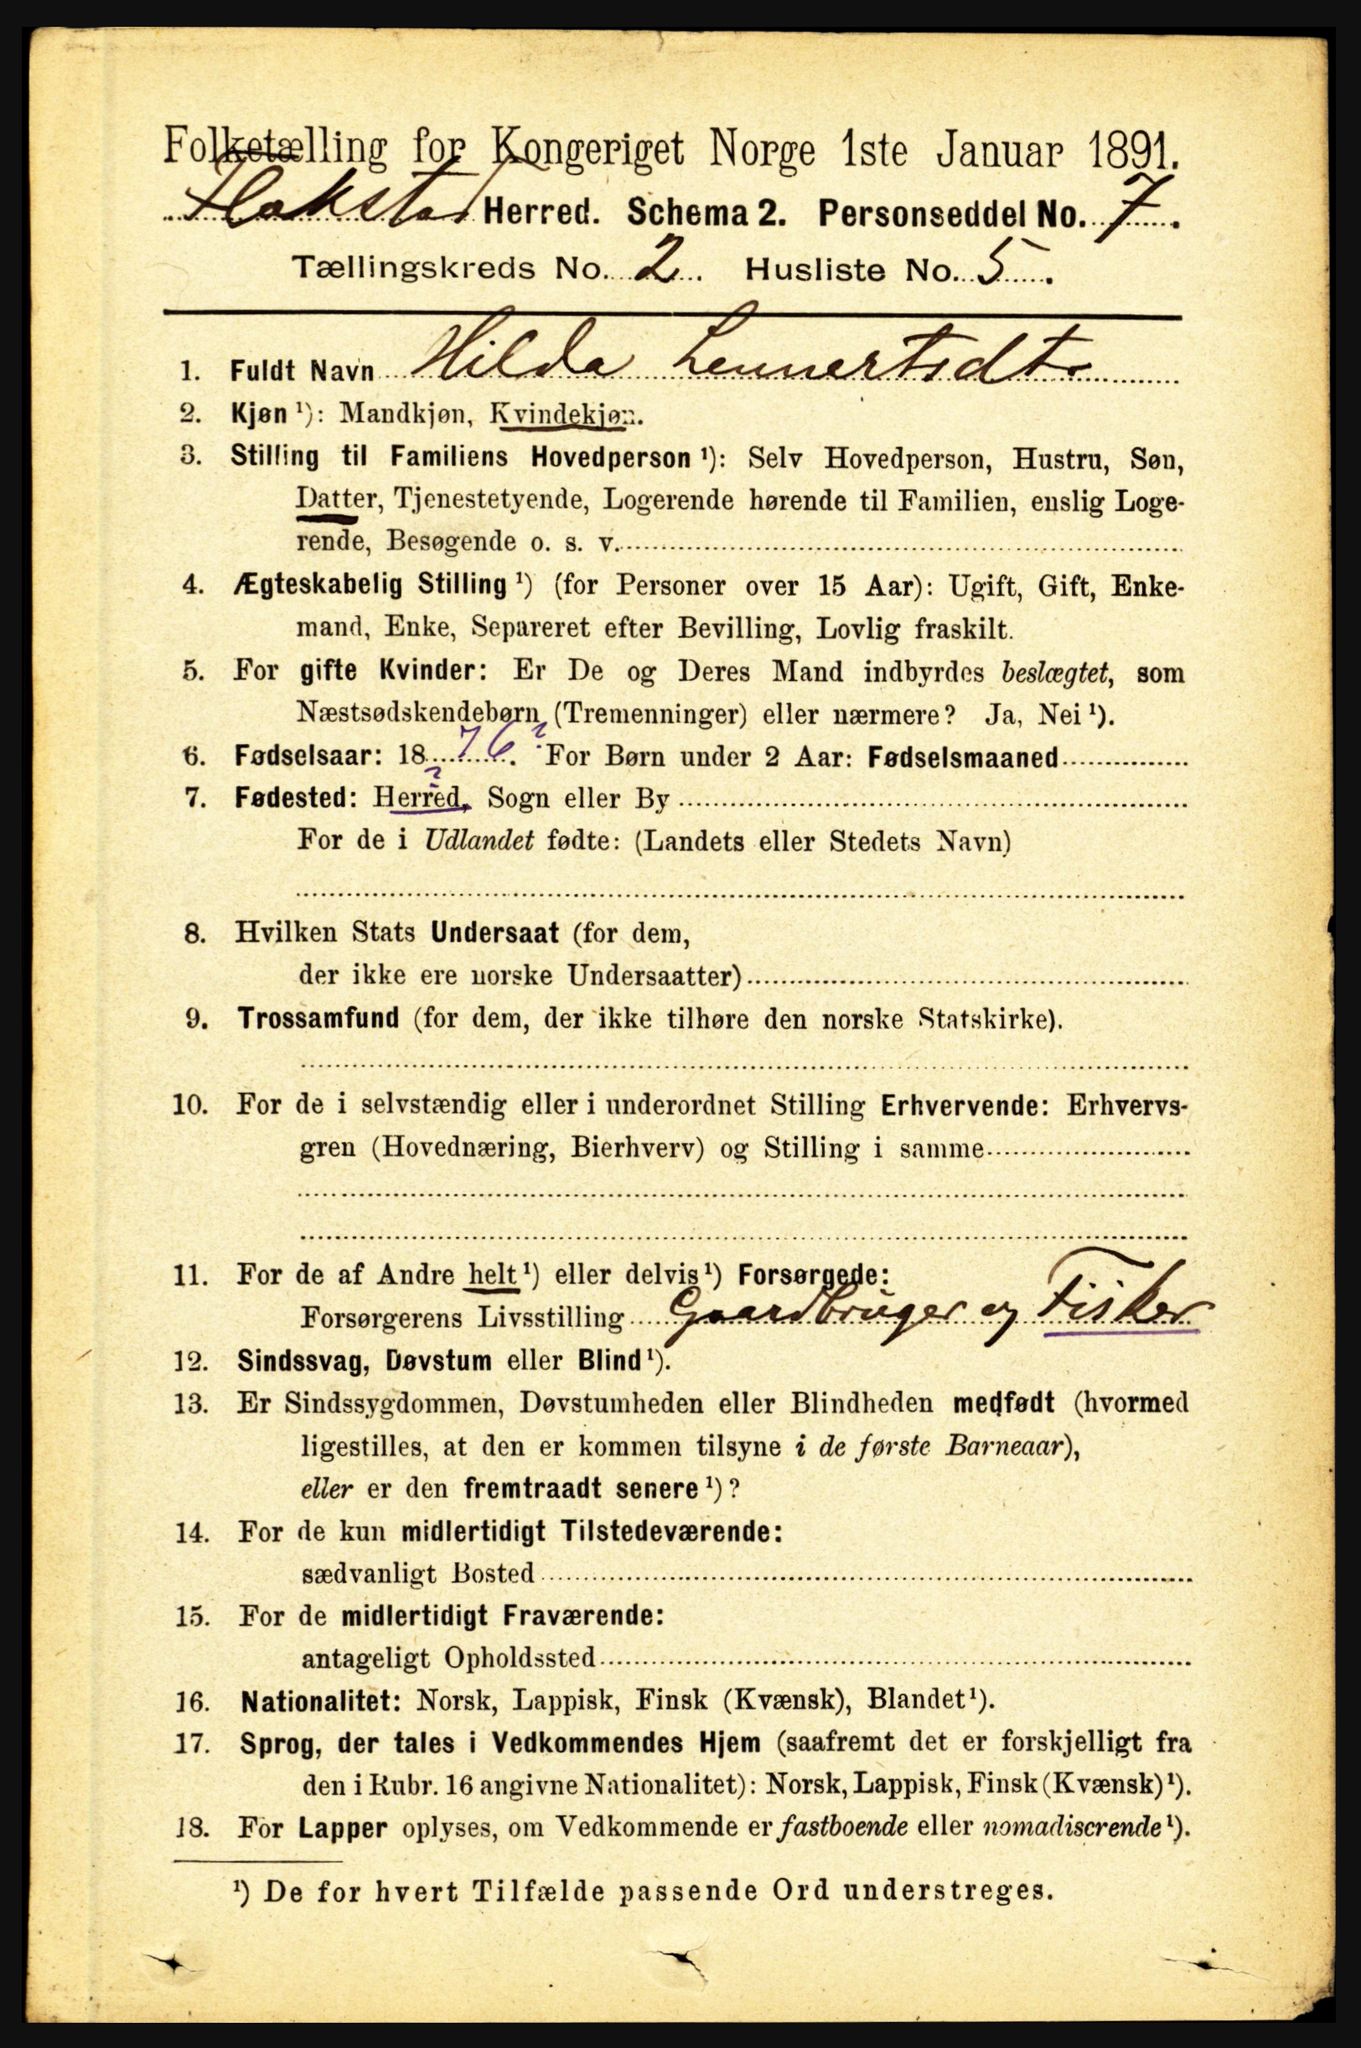 Folketælling for Kongeriget Norge 1ste Januar 1891.
Flakstad Herred. Schema 2. Personseddel No. 7.
Tællingskreds No. 2. Husliste No. 5.
1. Fuldt Navn Hilda Lennertsdt.
2. Kjøn ¹): Mandkjøn, Kvindekjøn.
3. Stilling til Familiens Hovedperson ¹): Selv Hovedperson, Hustru, Søn,
Datter, Tjenestetyende, Logerende hørende til Familien, enslig Loge-
rende, Besøgende o. s. v.
4. Ægteskabelig Stilling ¹) (for Personer over 15 Aar): Ugift, Gift, Enke-
mand, Enke, Separeret efter Bevilling, Lovlig fraskilt.
5. For gifte Kvinder: Er De og Deres Mand indbyrdes beslægtet, som
Næstsødskendebørn (Tremenninger) eller nærmere? Ja, Nei ¹).
6. Fødselsaar: 1876? For Børn under 2 Aar: Fødselsmaaned
7. Fødested: ? Herred, Sogn eller By
For de i Udlandet fødte: (Landets eller Stedets Navn)
8. Hvilken Stats Undersaat (for dem,
der ikke ere norske Undersaatter)
9. Trossamfund (for dem, der ikke tilhøre den norske Statskirke).
10. For de i selvstændig eller i underordnet Stilling Erhvervende: Erhvervs-
gren (Hovednæring, Bierhverv) og Stilling i samme
11. For de af Andre helt ¹) eller delvis ¹) Forsørgede:
Forsørgerens Livsstilling Gaardbruger og Fisker
12. Sindssvag, Døvstum eller Blind ¹).
13. Er Sindssygdommen, Døvstumheden eller Blindheden medfødt (hvormed
ligestilles, at den er kommen tilsyne i de første Barneaar),
eller er den fremtraadt senere ¹)?
14. For de kun midlertidigt Tilstedeværende:
sædvanligt Bosted
15. For de midlertidigt Fraværende:
antageligt Opholdssted
16. Nationalitet: Norsk, Lappisk, Finsk (Kvænsk), Blandet ¹).
17. Sprog, der tales i Vedkommendes Hjem (saafremt det er forskjelligt fra
den i Rubr. 16 angivne Nationalitet): Norsk, Lappisk, Finsk (Kvænsk) ¹).
18. For Lapper oplyses, om Vedkommende er fastboende eller nomadiserende ¹).
¹) De for hvert Tilfælde passende Ord understreges.